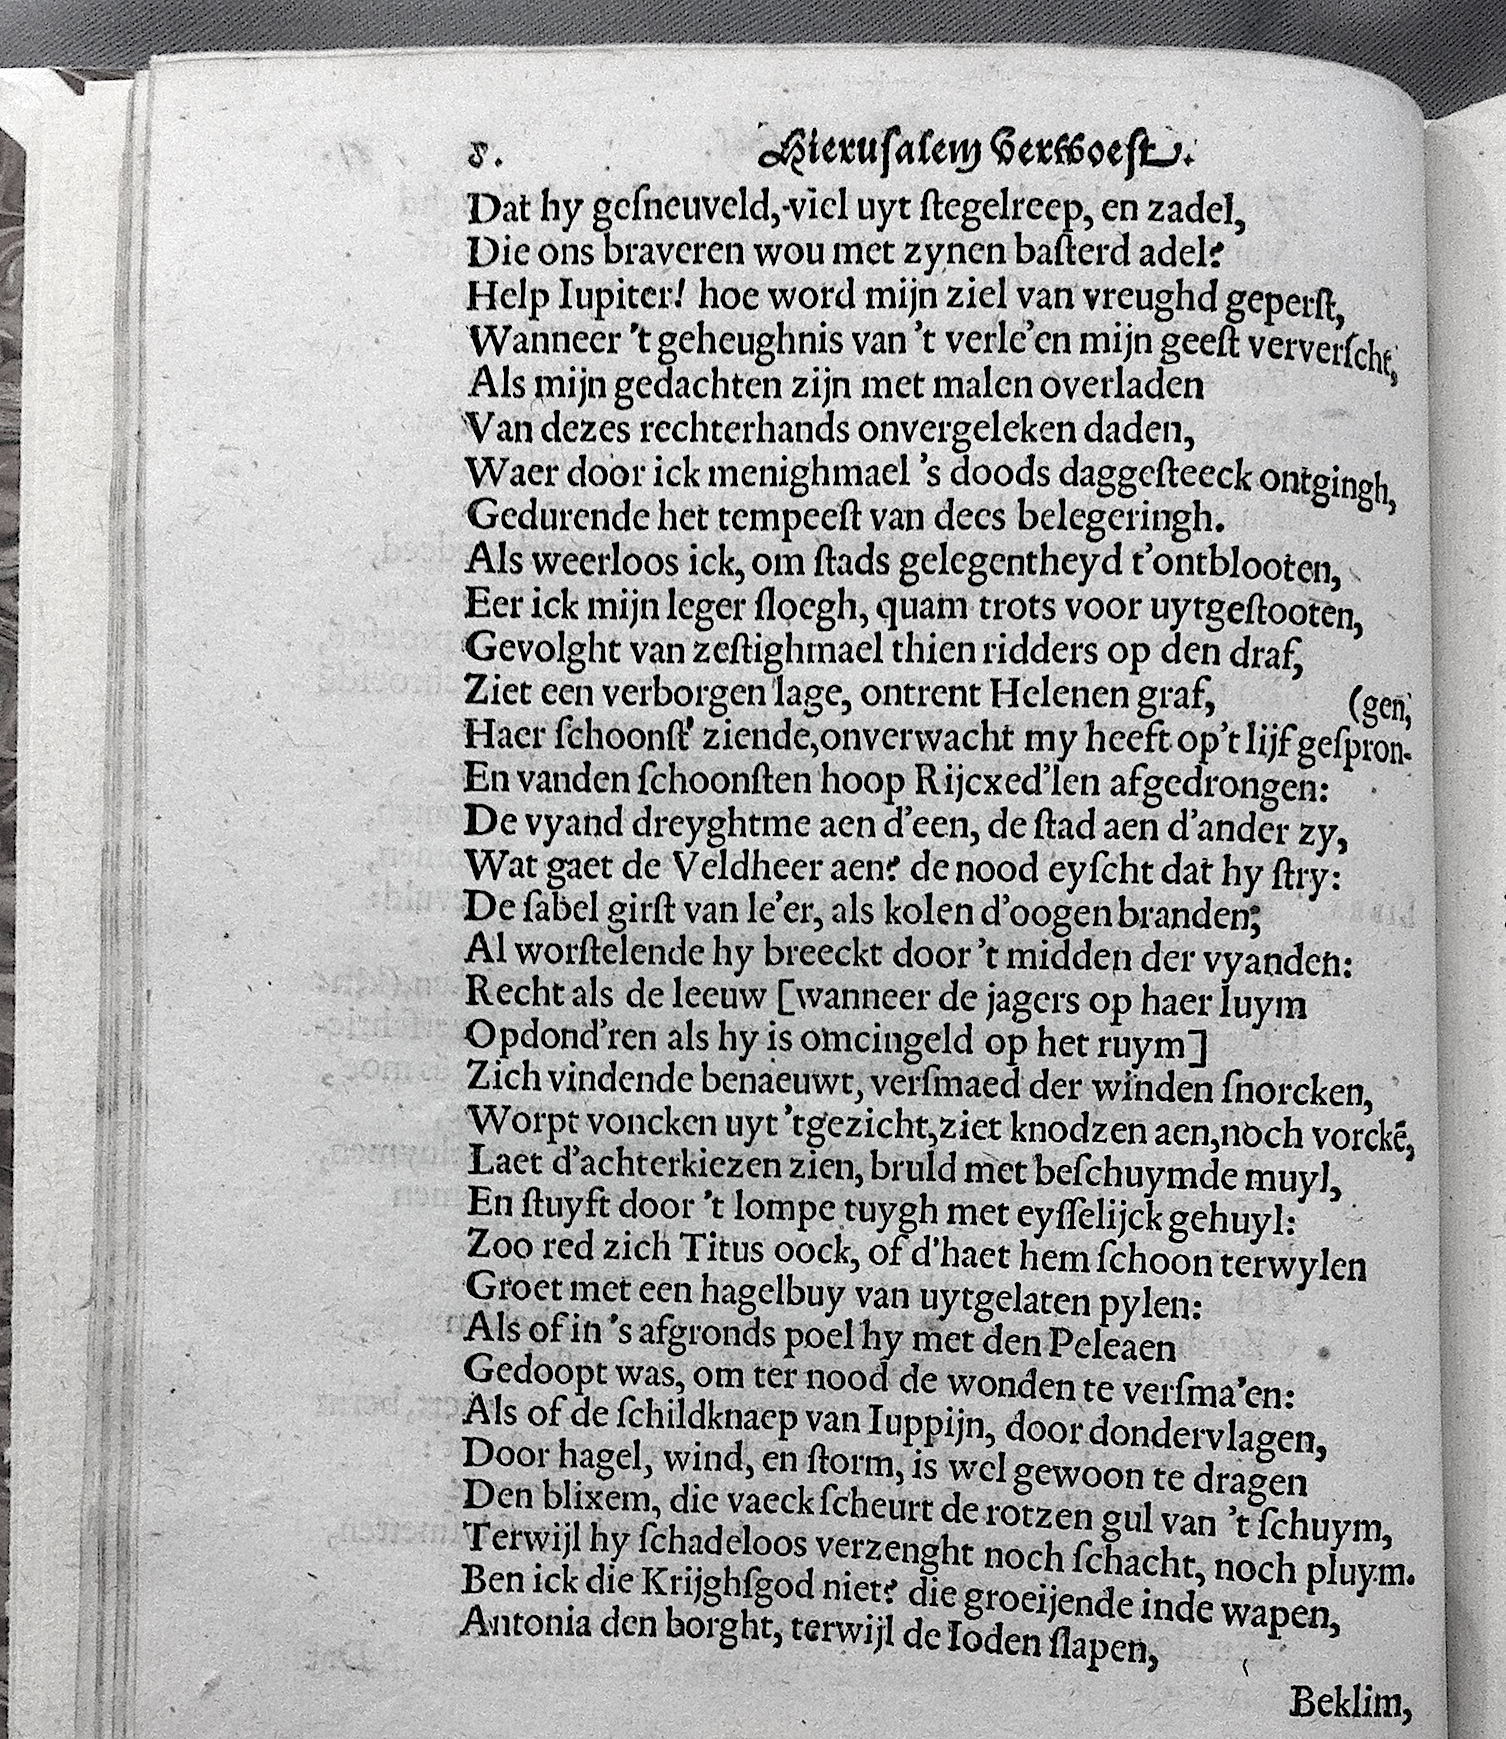 8. Hierusalem verwoest.
Dat hy geſneuveld, viel uyt ſtegelreep, en zadel,
Die ons braveren wou met zynen baſterd adel?
Help Iupiter! hoe word mijn ziel van vreughd geperſt,
Wanneer 't geheughnis van 't verle'en mijn geeſt ververſcht,
Als mijn gedachten zijn met malen overladen
Van dezes rechterhands onvergeleken daden,
Waer door ick menighmael 's doods daggeſteeck ontgingh,
Gedurende het tempeeſt van dees belegeringh.
Als weerloos ick, om ſtads gelegentheyd t'ontblooten,
Eer ick mijn leger ſloegh, quam trots voor uytgeſtooten,
Gevolght van zeſtighmael thien ridders op den draf,
Ziet een verborgen lage, ontrent Helenen graf, (gen,
Haer ſchoonſt' ziende, onverwacht my heeft op't lijf geſpron-
En vanden ſchoonſten hoop Rijcxed'len afgedrongen:
De vyand dreyghtme aen d'een, de ſtad aen d'ander zy,
Wat gaet de Veldheer aen? de nood eyſcht dat hy ſtry:
De ſabel girſt van le'er, als kolen d'oogen branden;
Al worſtelende hy breeckt door 't midden der vyanden:
Recht als de leeuw [wanneer de jagers op haer luym
Opdond'ren als hy is omcingeld op het ruym]
Zich vindende benaeuwt, verſmaed der winden ſnorcken,
Worpt voncken uyt 'tgezicht, ziet knodzen aen, noch vorckē,
Laet d'achterkiezen zien, bruld met beſchuymde muyl,
En ſtuyft door 't lompe tuygh met eyſſelijck gehuyl:
Zoo red zich Titus oock, of d'haet hem ſchoon terwylen
Groet met een hagelbuy van uytgelaten pylen:
Als of in 's afgronds poel hy met den Peleaen
Gedoopt was, om ter nood de wonden te verſma'en:
Als of de ſchildknaep van Iuppijn, door dondervlagen,
Door hagel, wind, en ſtorm, is wel gewoon te dragen
Den blixem, die vaeck ſcheurt de rotzen gul van 't ſchuym,
Terwijl hy ſchadeloos verzenght noch ſchacht, noch pluym.
Ben ick die Krijghſgod niet? die groeijende inde wapen,
Antonia den borght, terwijl de Ioden ſlapen,
Beklim,